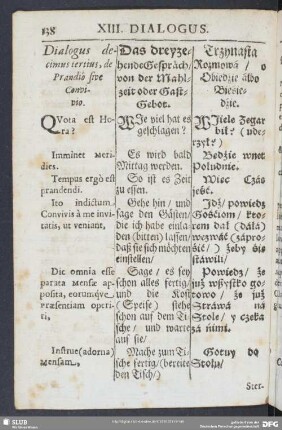 138 XIII. DIALOGUS.
Dialogus de-
cimus tertius, de
Prandio sive
Convi-
vio.
QVota est Ho-
ra?
Imminet Meri-
dies.
Tempus ergò est
prandendi.
Ito indictum
Convivis à me invi-
tatis, ut veniant,
Dic omnia esse
parata Mensæ ap-
posita, eorumq́ve
præsentiam oper-
iri,
Instrue (adorna)
Mensam,
Das dreyze-
hende Gespräch/
von der Mahl-
zeit oder Gast-
Gebot.
WJe viel hat es
geschlagen?
Es wird bald
Mittag werden.
So ist es Zeit
zu essen.
Gehe hin/ und
sage den Gästen/
die ich habe einla-
den (bitten) lassen/
daß sie sich möchten
einstellen/
Sage/ es sey
schon alles fertig/
und die Kost
(Speise) stehe
schon auf dem Ti-
sche/ und warte
auf sie/
Mache zum Ti-
sche fertig (bereite
den Tisch/)
Trzynasta
Rozmowá/ o
Obiedzie álbo
Biesie-
dzie.
WJele Zegar
bił? (ude-
rzył?)
Bedźie wnet
Południe.
Wiec Czás
jeść.
Jdź/ powiedz
Gościom/ kto-
rem dał (dáłá)
wezwáć (zápro-
śić)/ żeby śię
stáwili/
Powiedz/ że
już wszystko go-
towo/ że już
Stráwá ná
Stole/ y czeka
zá nimi.
Gotuy do
Stołu/
Ster-
SLUB
DFG